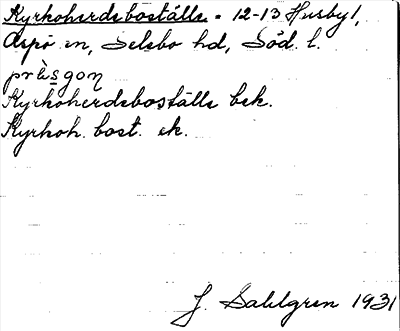 Kyrkoherdeboställe = 12-13 Husby 1,
Aspö sn, Selebo hd, Söd. l.
prä̀sgoɳ
Kyrkoherdeboställe bek.
Kyrkoh. bost. ek.
J. Sahlgren 1931